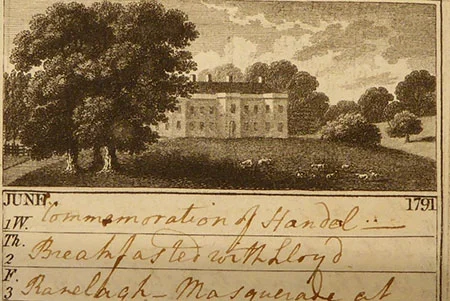 JUNE 1791
1 W. Commemoration of Handel
Th.
2 Breakfasted with Lloyd
F.
3 Ranelagh - Masquerade at